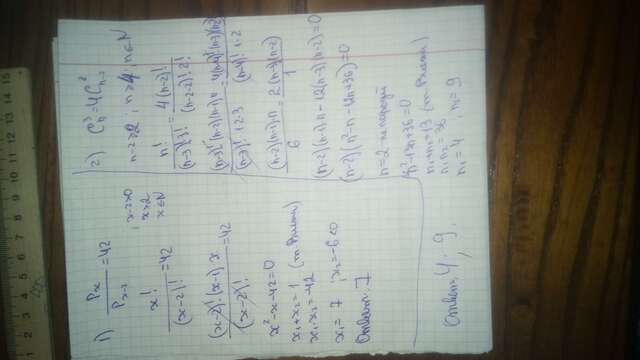 1) Pₓ / Pₓ₋₂ = 42 ; x-2≥0
x≥2
x∈N
x! / (x-2)! = 42
(x-2)!·(x-1)·x / (x-2)! = 42
x²-x-42=0
x₁+x₂=1 (т. Виета)
x₁·x₂=-42
x₁=7 ; x₂=-6<0
Ответ: 7
2) Cₙ³=4Cₙ₋₂²
n-2≥2 ; n≥4 ; n∈N
n! / (n-3)!3! = 4(n-2)! / (n-2-2)!2!
(n-3)!(n-2)(n-1)n / (n-3)!·1·2·3 = 4(n-4)!(n-3)(n-2) / (n-4)!·1·2
(n-2)(n-1)n / 6 = 2(n-3)(n-2) / 1
(n-2)(n-1)n-12(n-3)(n-2)=0
(n-2)(n²-n-12n+36)=0
n=2
n²-13n+36=0
n₁+n₂=13 (т. Виета)
n₁·n₂=36
n₁=4 , n₂=9
Ответ: 4 ; 9.